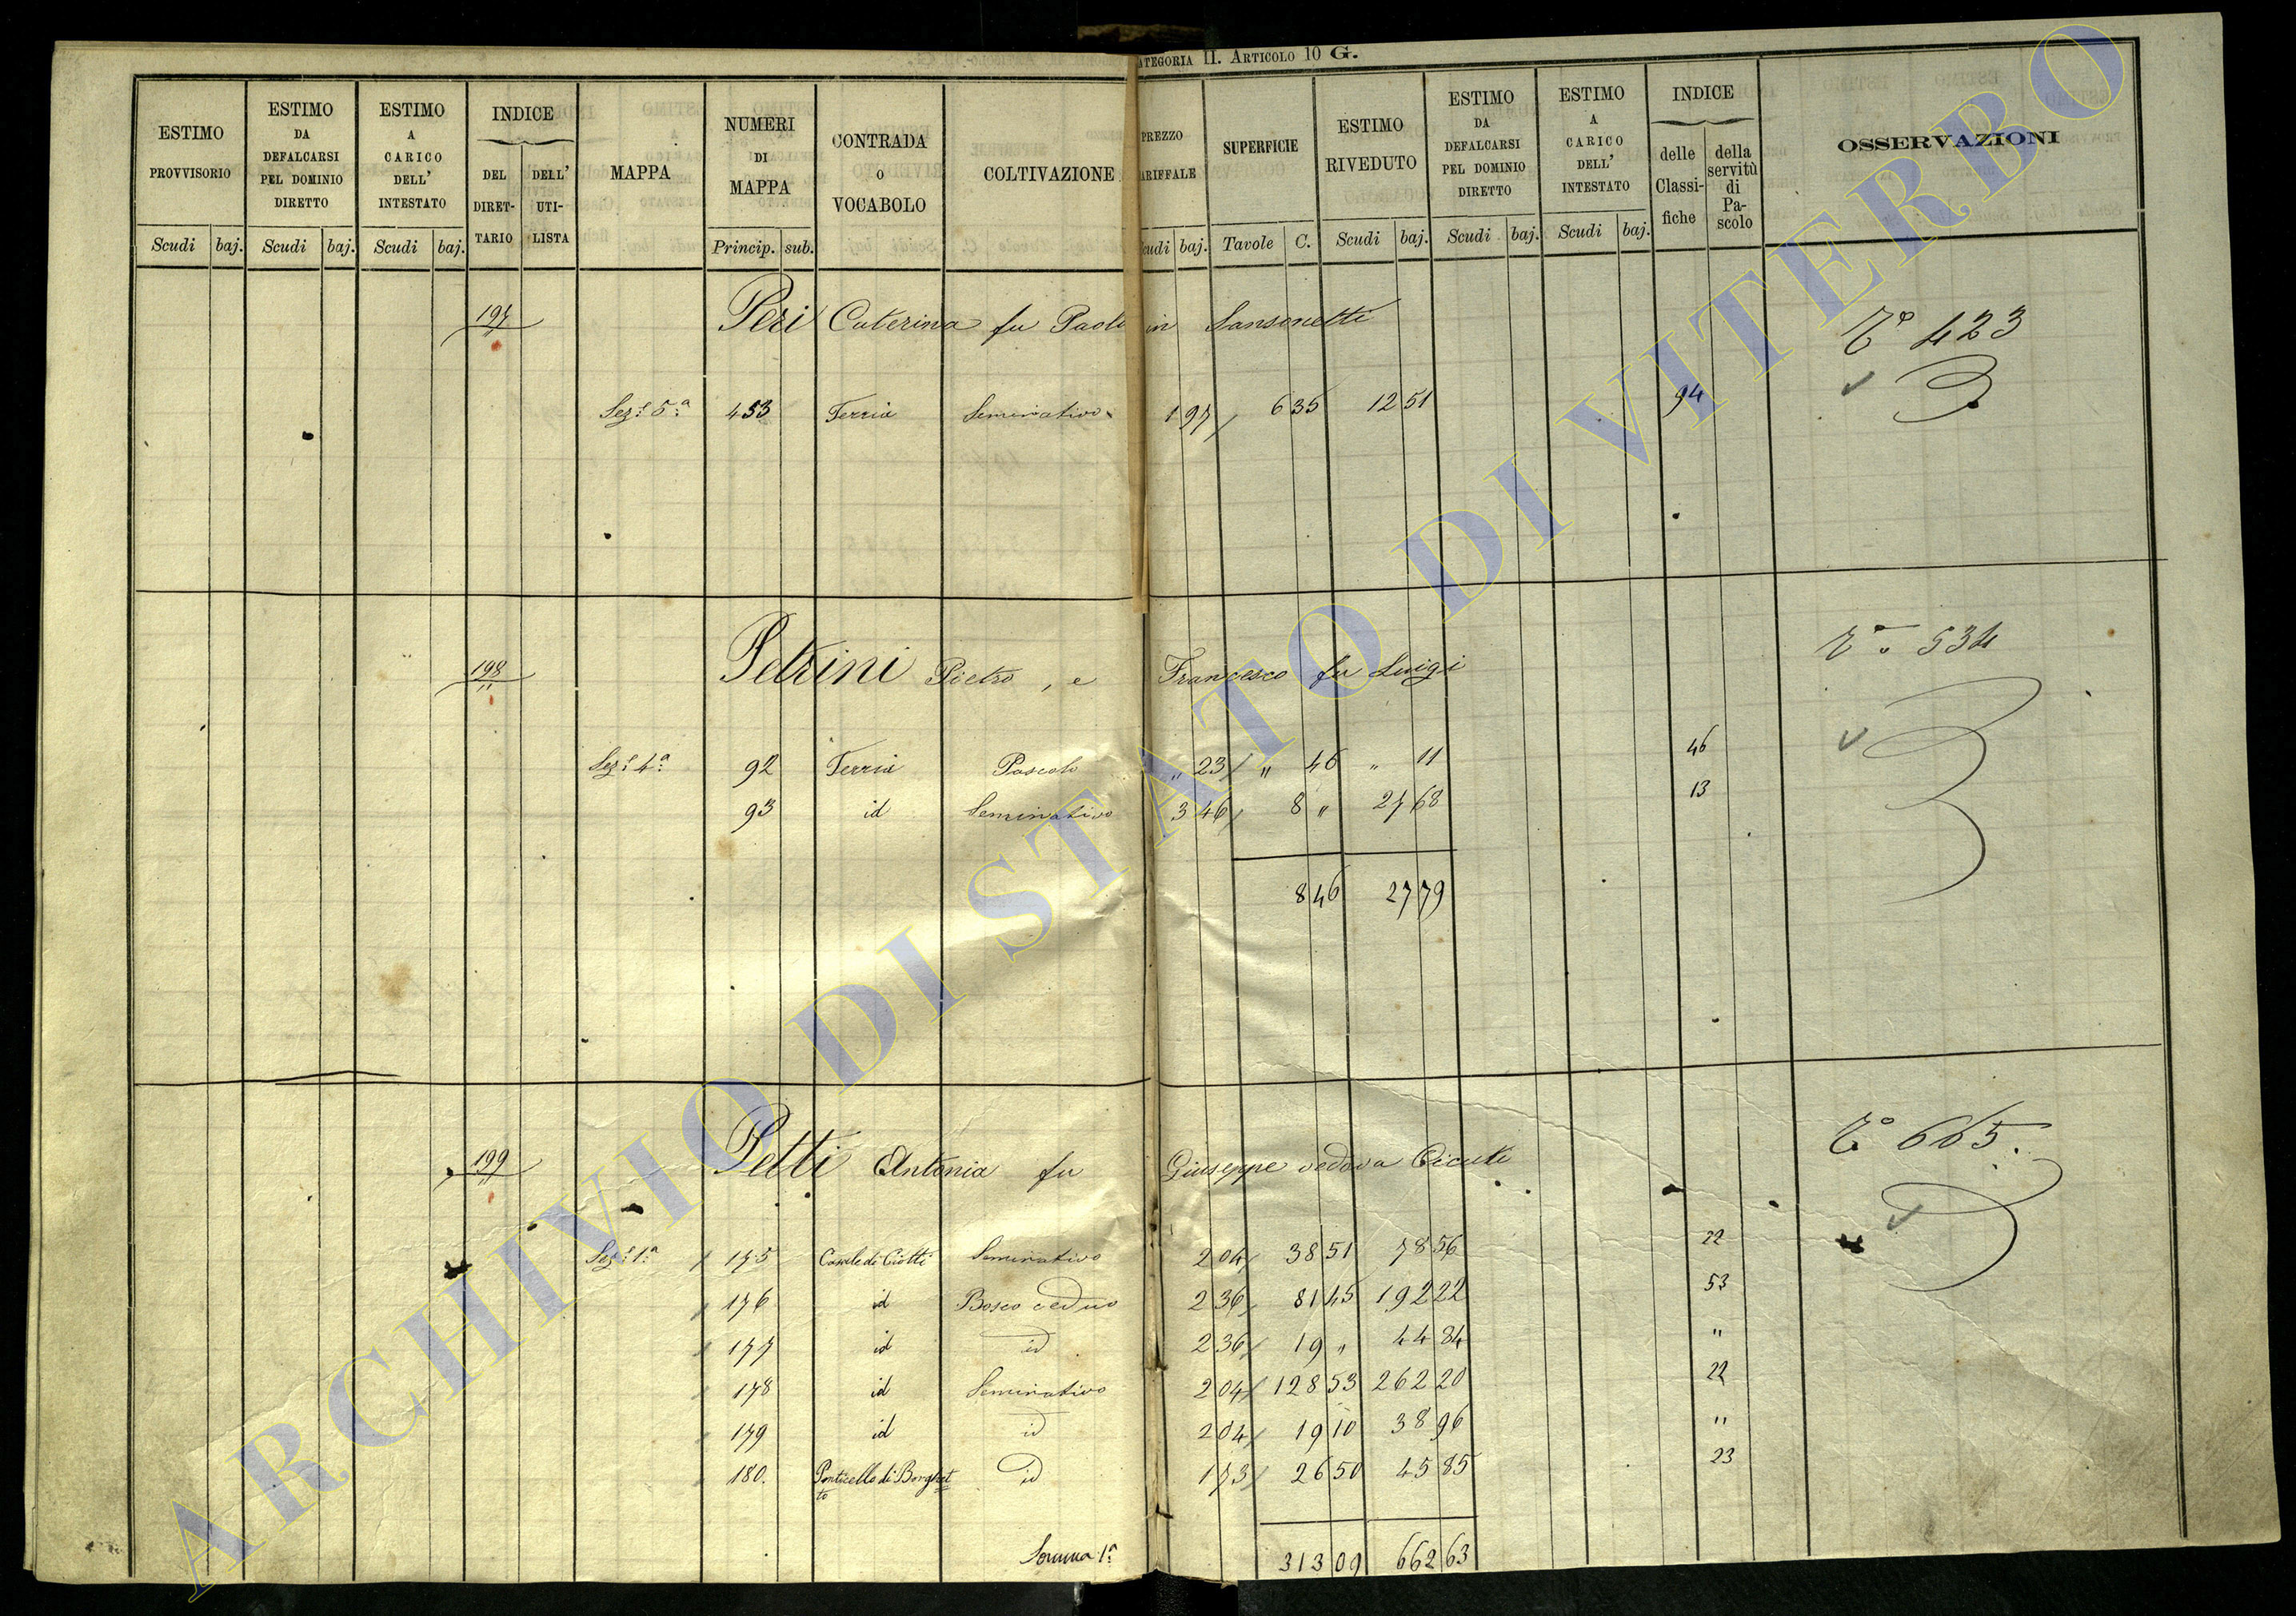 CATEGORIA II. ARTICOLO 10 G.
ESTIMO PROVVISORIO Scudi baj.
ESTIMO DA DEFALCARSI PEL DOMINIO DIRETTO Scudi baj.
ESTIMO A CARICO DELL' INTESTATO Scudi baj.
INDICE DEL DIRETTARIO DELL' UTILISTA
MAPPA
NUMERI DI MAPPA Princip. sub.
CONTRADA O VOCABOLO
COLTIVAZIONE
PREZZO ARIFFALE cudi baj.
SUPERFICIE Tavole C.
ESTIMO RIVEDUTO Scudi baj.
ESTIMO DA DEFALCARSI PEL DOMINIO DIRETTO Scudi baj.
ESTIMO A CARICO DELL' INTESTATO Scudi baj.
INDICE delle Classifiche della servitù di Pascolo
OSSERVAZIONI
197 Peri Caterina fu Paolo in Sansonetti 423
Sez. 5ª 453 Terria Seminativo 1 97 6 35 12 51 94
198 Petrini Pietro, e Francesco fu Luigi 534
Sez. 4ª 92 Terria Pascolo " 23 " 46 " 11 46
93 id Seminativo 3 46 8 " 27 68 13
8 46 27 79
199 Petti Antonia fu Giuseppe vedova Cicuti 665
Sez. 1ª 175 Casale di Ciotti Seminativo 2 04 38 51 78 56 22
176 id Bosco ceduo 2 36 81 45 192 22 53
177 id id 2 36 19 " 44 84 "
178 id Seminativo 2 04 128 53 262 20 22
179 id id 2 04 19 10 38 96 "
180. Ponticello di Borghetto id 1 73 26 50 45 85 23
Somma 1ª 313 09 662 63
ARCHIVIO DI STATO DI VITERBO